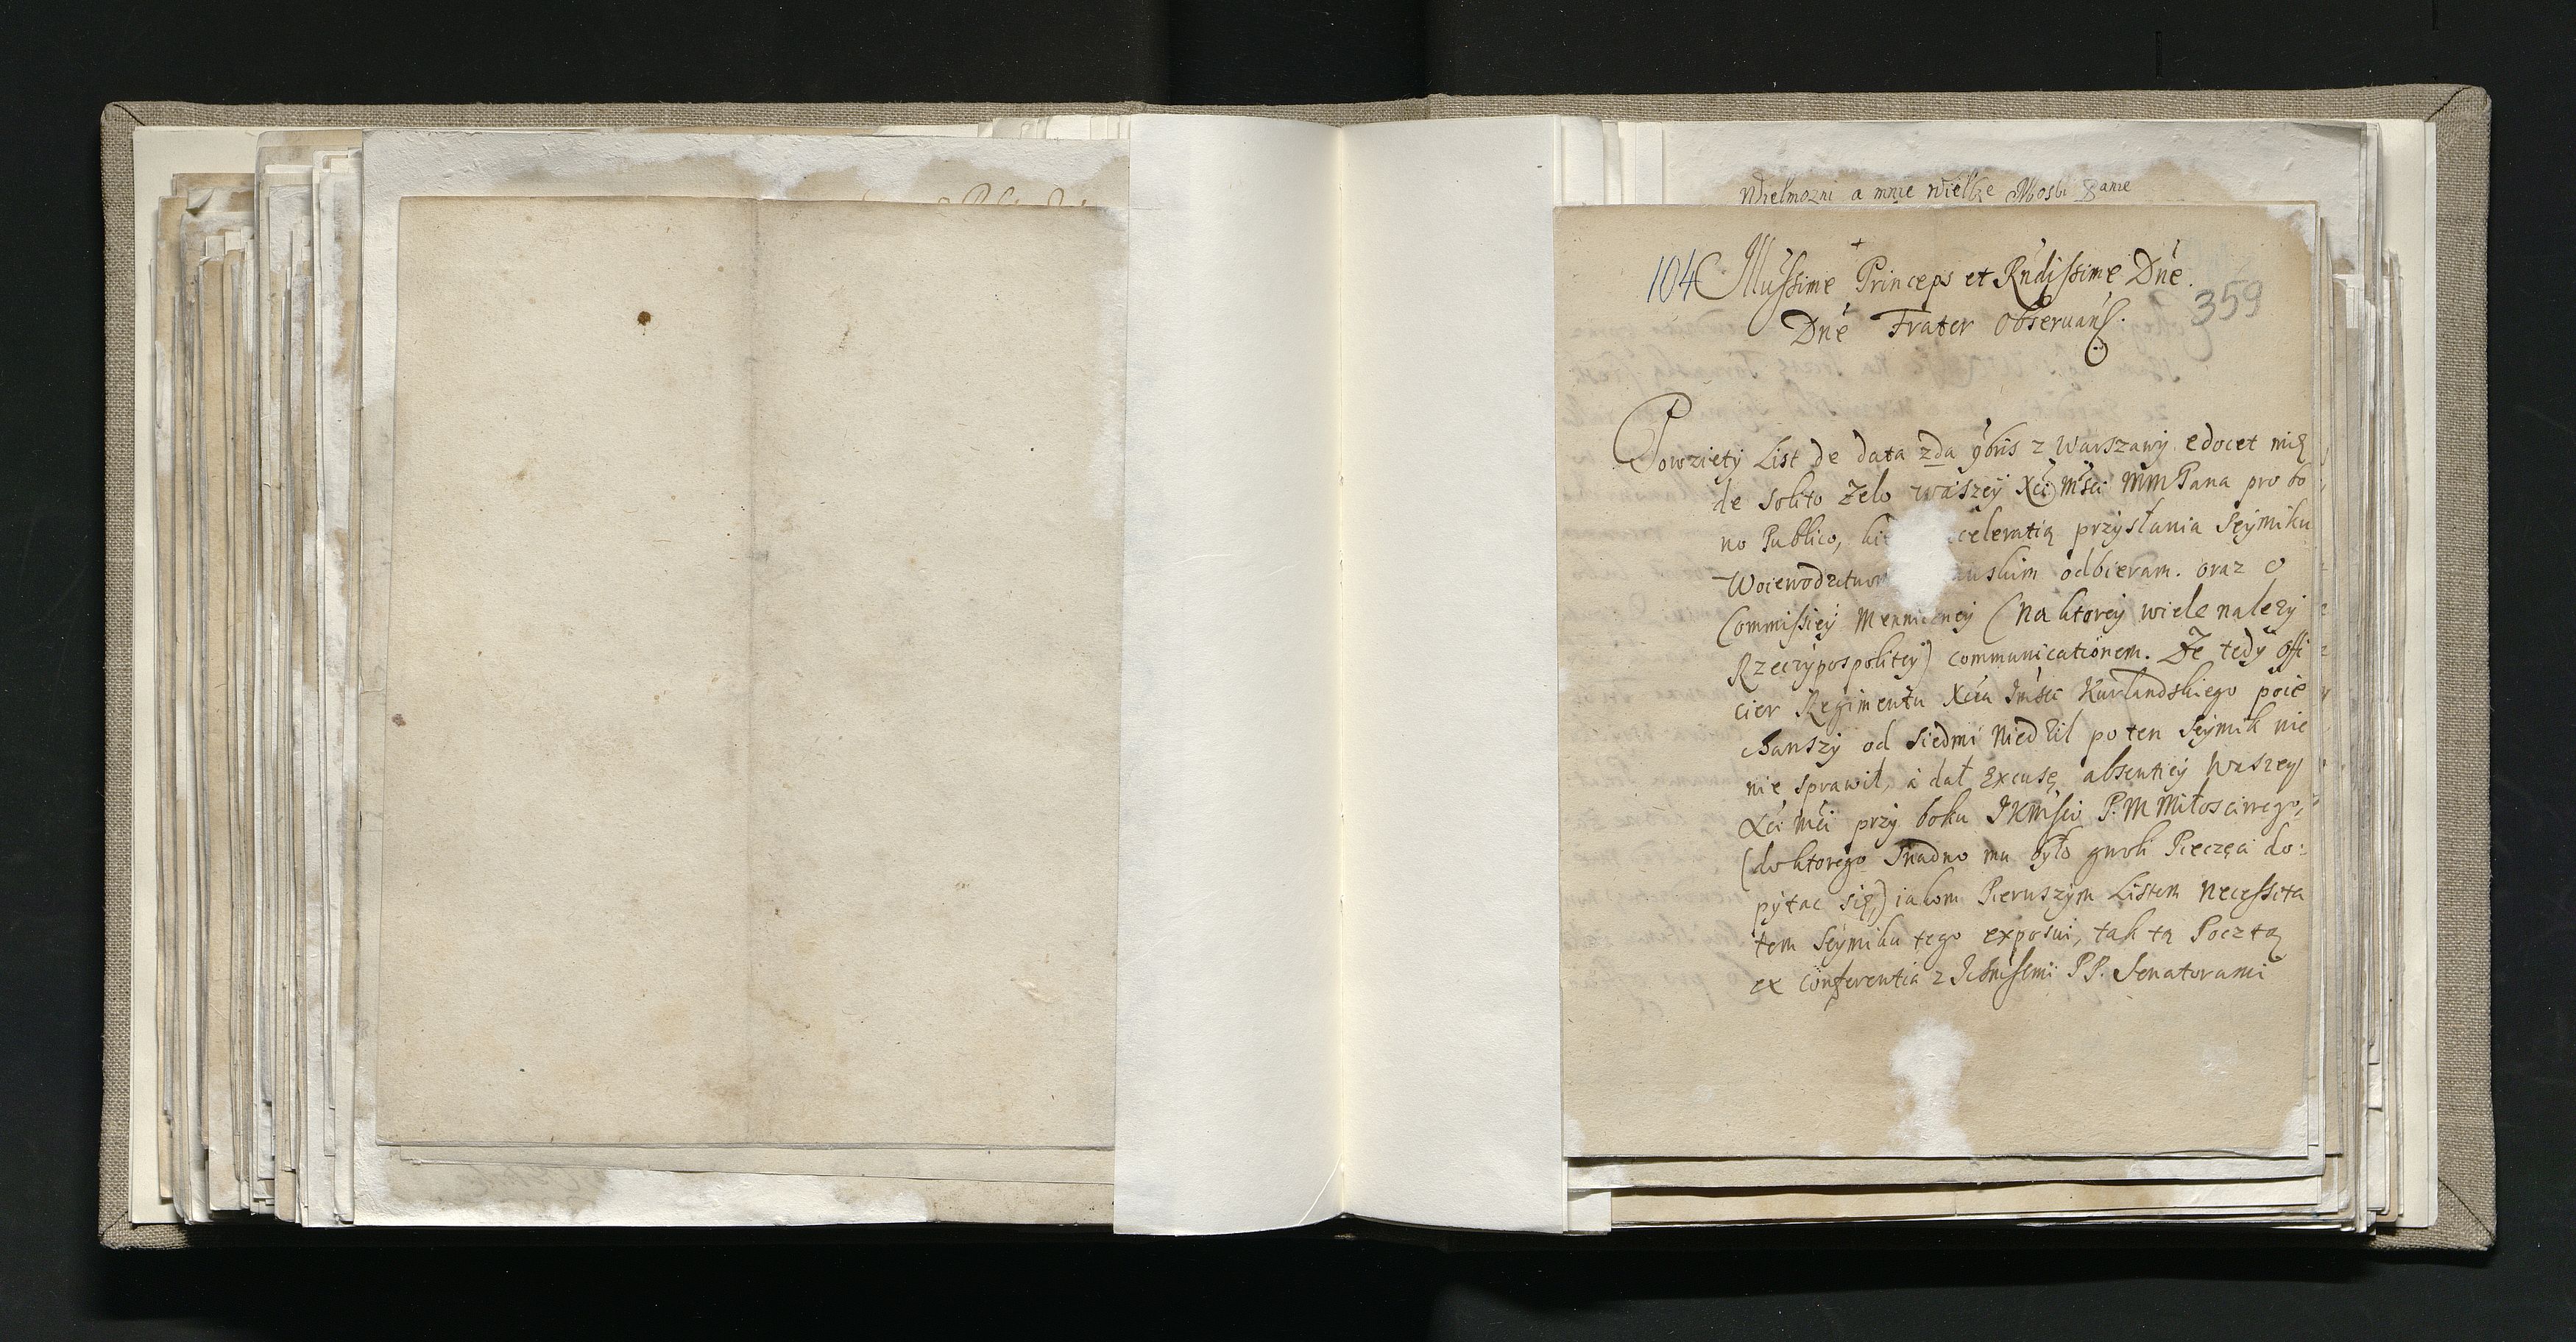 Wielmozni a mnie Wielce Mosci Panie
+
104 Illussime Princeps et Rndissime Dne.
359
Dne Frater Obseruans.
Powziety List de data 2da 9bris z Warszawy edocet mię
de solito Zelo waszey Xci Msci MMPana pro bo
no Publico, kie celeratią przysłania Seymiku
Woiewodztwom auskim odbieram. oraz o
Commissiey Menniczney (Na ktorey wiele nalezy
Rzeczypospolitey) communicationem. Ze tedy Offi
cier Regimentu Xcia Jmsci Kurlandskiego poie
chawszy od siedmi Niedzil po ten Seymik nie
nie sprawił, a dał Excusę absentiey Waszey
Xci Mci przy boku JKMsci P. M Miłosciwego,
(do ktorego snadno mu było gwoli Pieczęci do:
pytac się,) iakom Pierwszym Listem Necessita
tem Seymiku tego exposui, tak tą Pocztą
ex conferentia z Ichmssmi PP. Senatorami